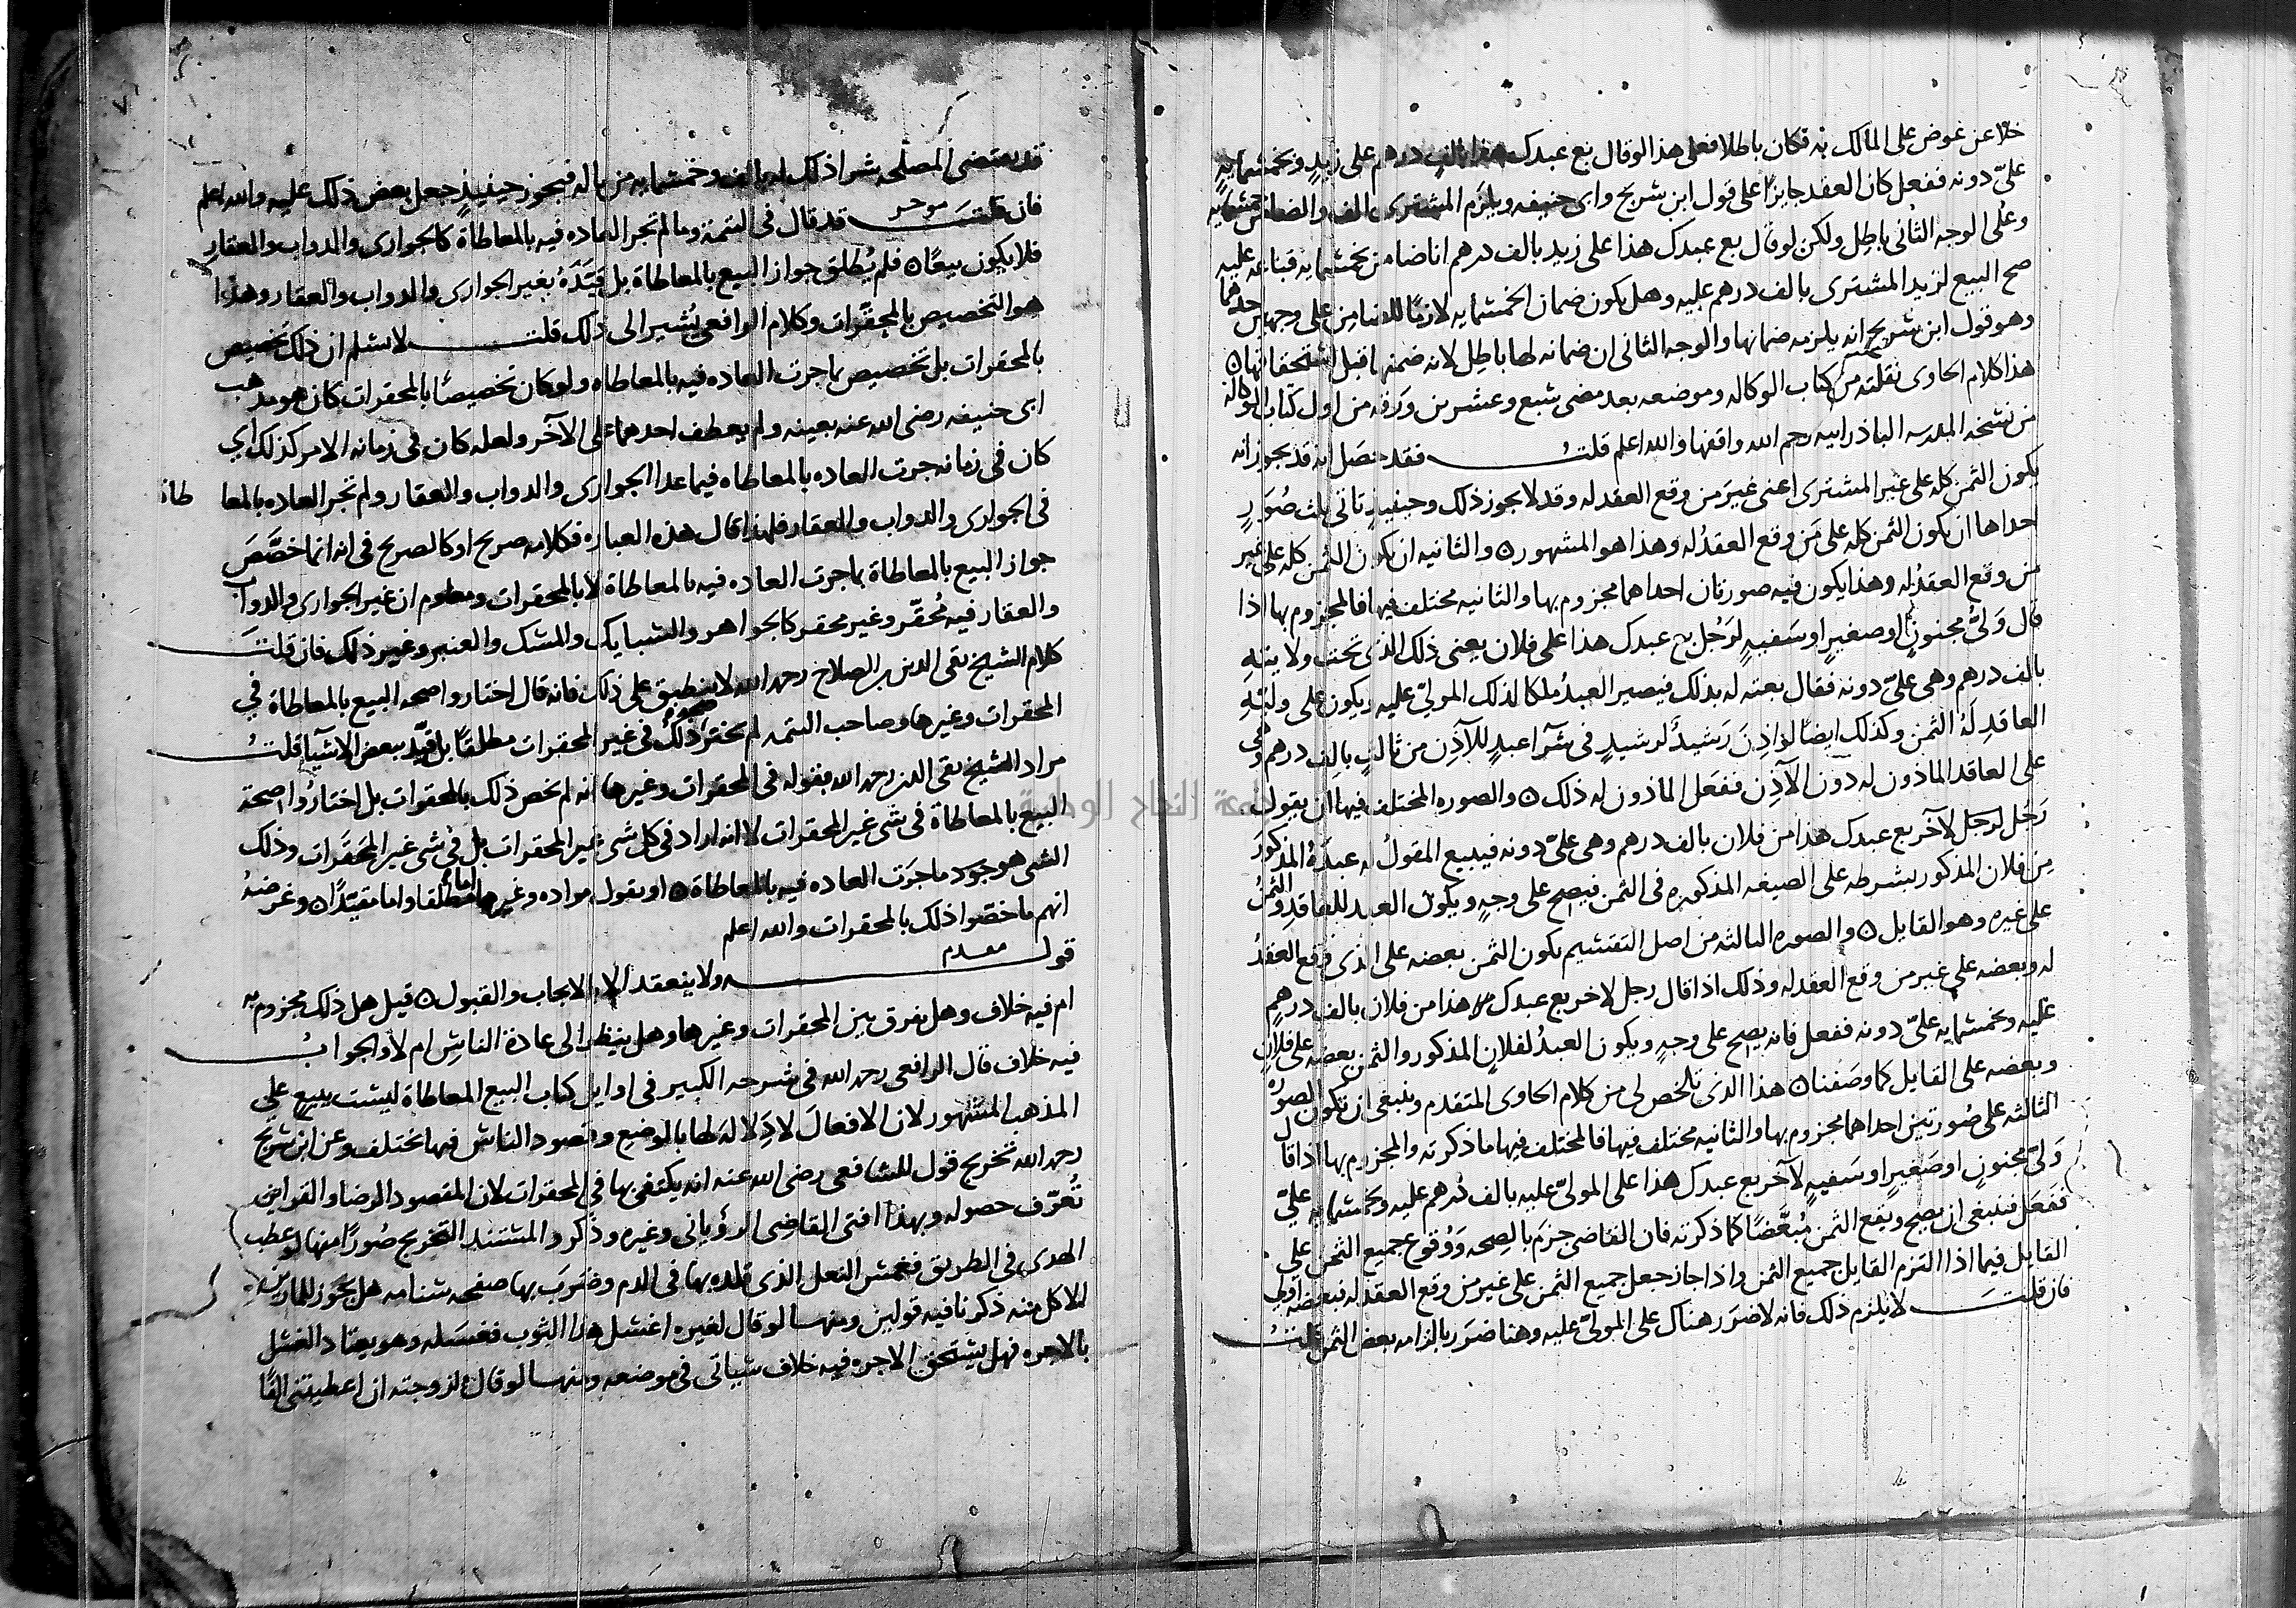 خلا عن عوض على المالك به فكان باطلا فعلى هذا لو قال بع عبدك هذا بالف درهم على زيد وبخمسمايه
علىّ دونه ففعل كان العقد جايزا على قول ابن سريج وابى حنيفه ويلزم المشترى الف والضامن خمسمايه
وعلى الوجه الثانى باطل ولكن لو قال بع عبدك هذا على زيد بالف درهم انا ضامن بخمسمايه فباعه عليه
صح البيع لزيد المشترى بالف درهم عليه وهل يكون ضمان الخمسمايه لازمًا للضامن على وجهين احدهما
وهو قول ابن سريج انه يلزمه ضمانها والوجه الثانى ان ضمانه لها باطل لانه ضمنها قبل استحقاقها ه
هذا كلام الحاوى نقلته من كتاب الوكاله وموضعه بعد مضى سبع وعشرين ورقه من اول كتاب الوكاله
من نسخه المدرسه الباذرانيه رحم الله واقفها والله اعلم قلت فقد حصل انه قد يجوز انه
يكون الثمن كله على غير المشترى اعنى غير من وقع العقد له وقد لا يجوز ذلك وحينيذ تاتى ثلث صُوَرٍ
احداها ان يكون الثمن كله على مَن وقع العقدُ له وهذا هو المشهور ه والثانيه ان يكون الثمن كله على غير
من وقع العقدُ له وهذا يكون فيه صورتان احداهما مجزوم بها والثانيه مختلف فيها فالمجزوم بها اذا
قال وَلىُّ مجنونٍ او صغيرٍ او سَفيهٍ لرَجُلٍ بع عبدك هذا على فلان يعنى ذلك الذى تحت ولايته
بالف درهم وهى علىّ دونه فقال بعته له بذلك فيصير العبدُ ملكا لذلك المولىّ عليه ويكون على وليّهِ
العاقدِ لَهُ الثمن وكذلك ايضًا لو اذِنَ رَشيدٌ لرشيدٍ فى شرآ عبدٍ للآذِنِ من ثالثٍ بالف درهم وهى
على العاقد الماذون له دون الآذِن ففعل الماذون له ذلك ه والصوره المختلف فيها ان يقول
رَجُل لرجل لآخر بع عبدك هذا من فلان بالف درهم وهى علىّ دونه فيبيع المقولُ له عبدَهُ المذكورَ
مِن فلان المذكور بشرطه على الصيغه المذكوره فى الثمن فيصح على وجهٍ ويكون العبد للعاقدِ والثمنُ
على غيره وهو القايل ه والصوره الثالثه من اصل التقسيم يكون الثمن بعضه على الذى وقع العقدُ
له وبعضه على غير من وقع العقد له وذلك اذا قال رجل لاخر بع عبدك هذا من فلان بالف درهم
عليه وبخمسمايه علىّ دونه ففعل فانه يصح على وجهٍ ويكون العبدُ لفلانٍ المذكور والثمن بعضه على فلان
وبعضه على القايل كما وصَفنا ه هذا الذى تلخص لى من كلام الحاوى المتقدم وينبغى ان تكون الصوره
الثالثه على صُورتين احداهما مجزوم بها والثانيه مختلف فيها فالمختلف فيها ما ذكرته والمجزوم بها اذا قال
وَلىّ مجنونٍ او صَغيرٍ او سَفيهٍ لآخر بع عبدك هذا على المولىّ عليه بالف درهم عليه وبخمسمايه علىّ
ففَعَل فينبغى ان يصح ويقع الثمن مُبعَّضًا كما ذكرته فان القاضى جزَم بالصحه وَوُقوع جميع الثمن على
القايل فيما اذا التزم القايل جميع الثمن واذا جاز جعل جميع الثمن على غير من وقع العقد له فبعضه اولى
فان قلت لا يلزم ذلك فانه لا ضرَر هناك على المولىّ عليه وهنا ضَرَر بالزامه بعض الثمن قلتُ
قد يقتضى المصلحه شرا ذلك له بالف وخمسمايه من ماله فيجوز حينيذٍ جعل بعض ذلك عليه والله اعلم
موخر
فان قلتَ قد قال فى التتمة وما لم تجر العاده فيه بالمعاطاة كالجوارى والدواب والعقارِ
فلا يكون بيعًا ه فلم يُطلق جواز البيع بالمعاطاة بل قيَّدَهُ بغير الجوارى والدواب والعقار وهذا
هو التخصيص بالمحقَّرات وكلام الرافعى يُشير الى ذلك قلت لا نسَلم ان ذلك تخصيص
بالمحقرات بل تخصيص بما جرت العاده فيه بالمعاطاه ولو كان تخصيصًا بالمحقرات كان هو مذهب
ابى حنيفه رضى الله عنه بعينه ولم يعطف احدهما على الآخر ولعله كان فى زمانه الامر كذلك اى
كان فى زمانه جرت العاده بالمعاطاه فيما عدا الجوارى والدواب والعقار ولم تجر العاده بالمعا طاة
فى الجوارى والدواب والعقار فلهذا قال هذه العباره فكلامه صريح او كالصريح فى انه انما خصَّصَ
جواز البيع بالمعاطاة بما جرت العاده فيه بالمعاطاة لا بالمحقرات ومعلوم ان غير الجوارى والدواب
والعقار فيه مُحقّر وغير محقر كالجواهر والسبايك والمسك والعنبر وغير ذلك فان قلتَ
كلام الشيخ تقى الدين بن الصلاح رحمه الله لا ينطبق على ذلك فانه قال اختاروا صحه البيع بالمعاطاة فى
المحقرات وغيرها وصاحب التتمه لم يختر ذلك فى غير المحقرات مطلقًا بل قيّد ببعض الاشيآ قلتُ
مراد الشيخ تقى الدين رحمه الله بقوله فى المحقرات وغيرها انه لم يخص ذلك بالمحقرات بل اختارُوا صحة
البيع بالمعاطاة فى شى غير المحقرات لا انه اراد فى كل شى غير المحقرات بل فى شى غير المحقرات وذلك
الشى هو جود ما جرَت العاده فيه بالمعاطاة ه او يقول مراده وغيرها اما مطلقا واما مقيّدًا ه وغرضهُ
انهم ما خصّوا ذلك بالمحقرات والله اعلم
مقدم
قوله ولا ينعقد الا بالايجاب والقبول ه قيل هل ذلك مجزوم به
ام فيه خلاف وهل يفرق بين المحقرات وغيرها وهل ينظر الى عادة الناسِ ام لا والجوابُ
فيه خلاف قال الرافعى رحمه الله فى شرحه الكبير فى اوايل كتاب البيع المعاطاة ليست ببيعٍ على
المذهب المشهور لان الافعالَ لا دِلالة لها بالوضع وقصود الناس فيها تختلف وعن ابن سريج
رحمه الله تخريج قول للشافعى رضى الله عنه انه يكتفى بها فى المحقرات لان المقصود الرضا والقراين
تُعرّف حصوله وبهذا افتى القاضى الرؤيانى وغيره وذكروا لمستند التخريج صُورًا منها لو عطب
الهدى فى الطريق فغمس النعل الذى قلده بها فى الدم وضرَبَ بها صفحه سنامه هل يجوز للمارّين
الاكل منه ذكرنا فيه قولين ومنها لو قال لغيره اغسل هذا الثوب فغسَله وهو يعتاد الغسل
بالاجره فهل يستحق الاجره فيه خلاف سياتى فى موضعه ومنها لو قال لزوجته ان اعطيتنى الفًا